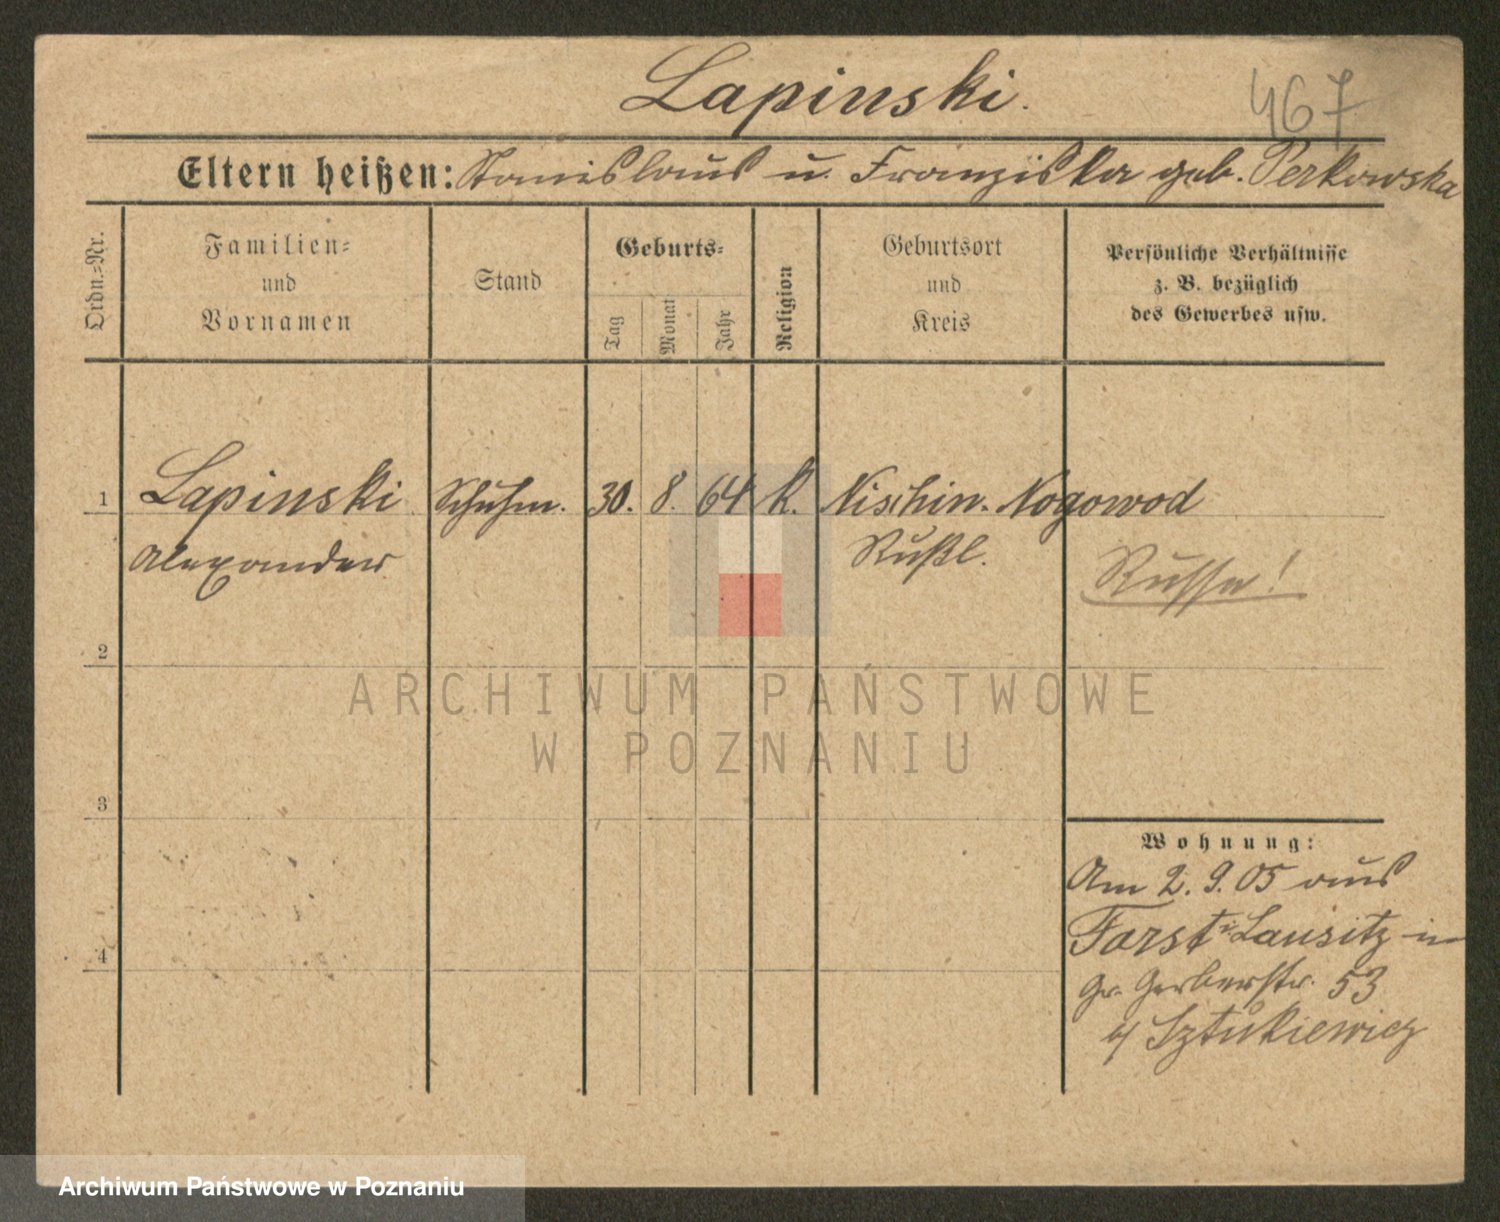 Lapinski.
467
Eltern heißen: Stanislaus u. Franziska geb. Perkowska
Ordn.-Nr.
Familien-
und
Vornamen
Stand
Geburts-
Tag
Monat
Jahr
Religion
Geburtsort
und
Kreis
Persönliche Verhältnisse
z. B. bezüglich
des Gewerbes usw.
1 Lapinski Schuhm. 30. 8. 64 k. Nischin. Nogowod
Alexander Rußl.
Russe!
2
ARCHIWUM PAŃSTWOWE
W POZNANIU
3
Wohnung:
Am 2. 9. 05 aus
Forst i. Lausitz in
4
Gr. Gerberstr. 53
b/ Sztukiewicz
Archiwum Państwowe w Poznaniu